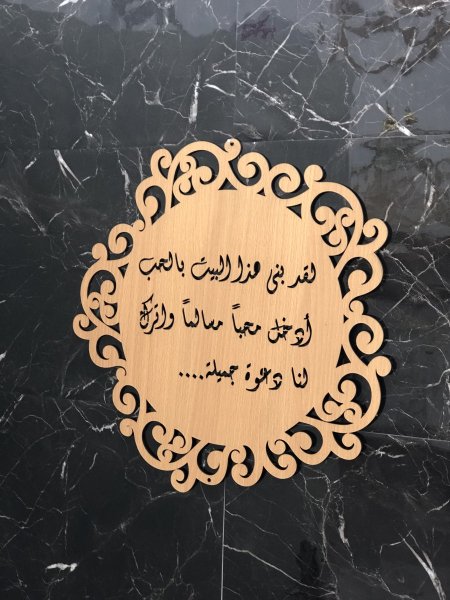 لقد بني هذا البيت بالحب
أدخل محباً مسالماً واترك
لنا دعوة جميلة....